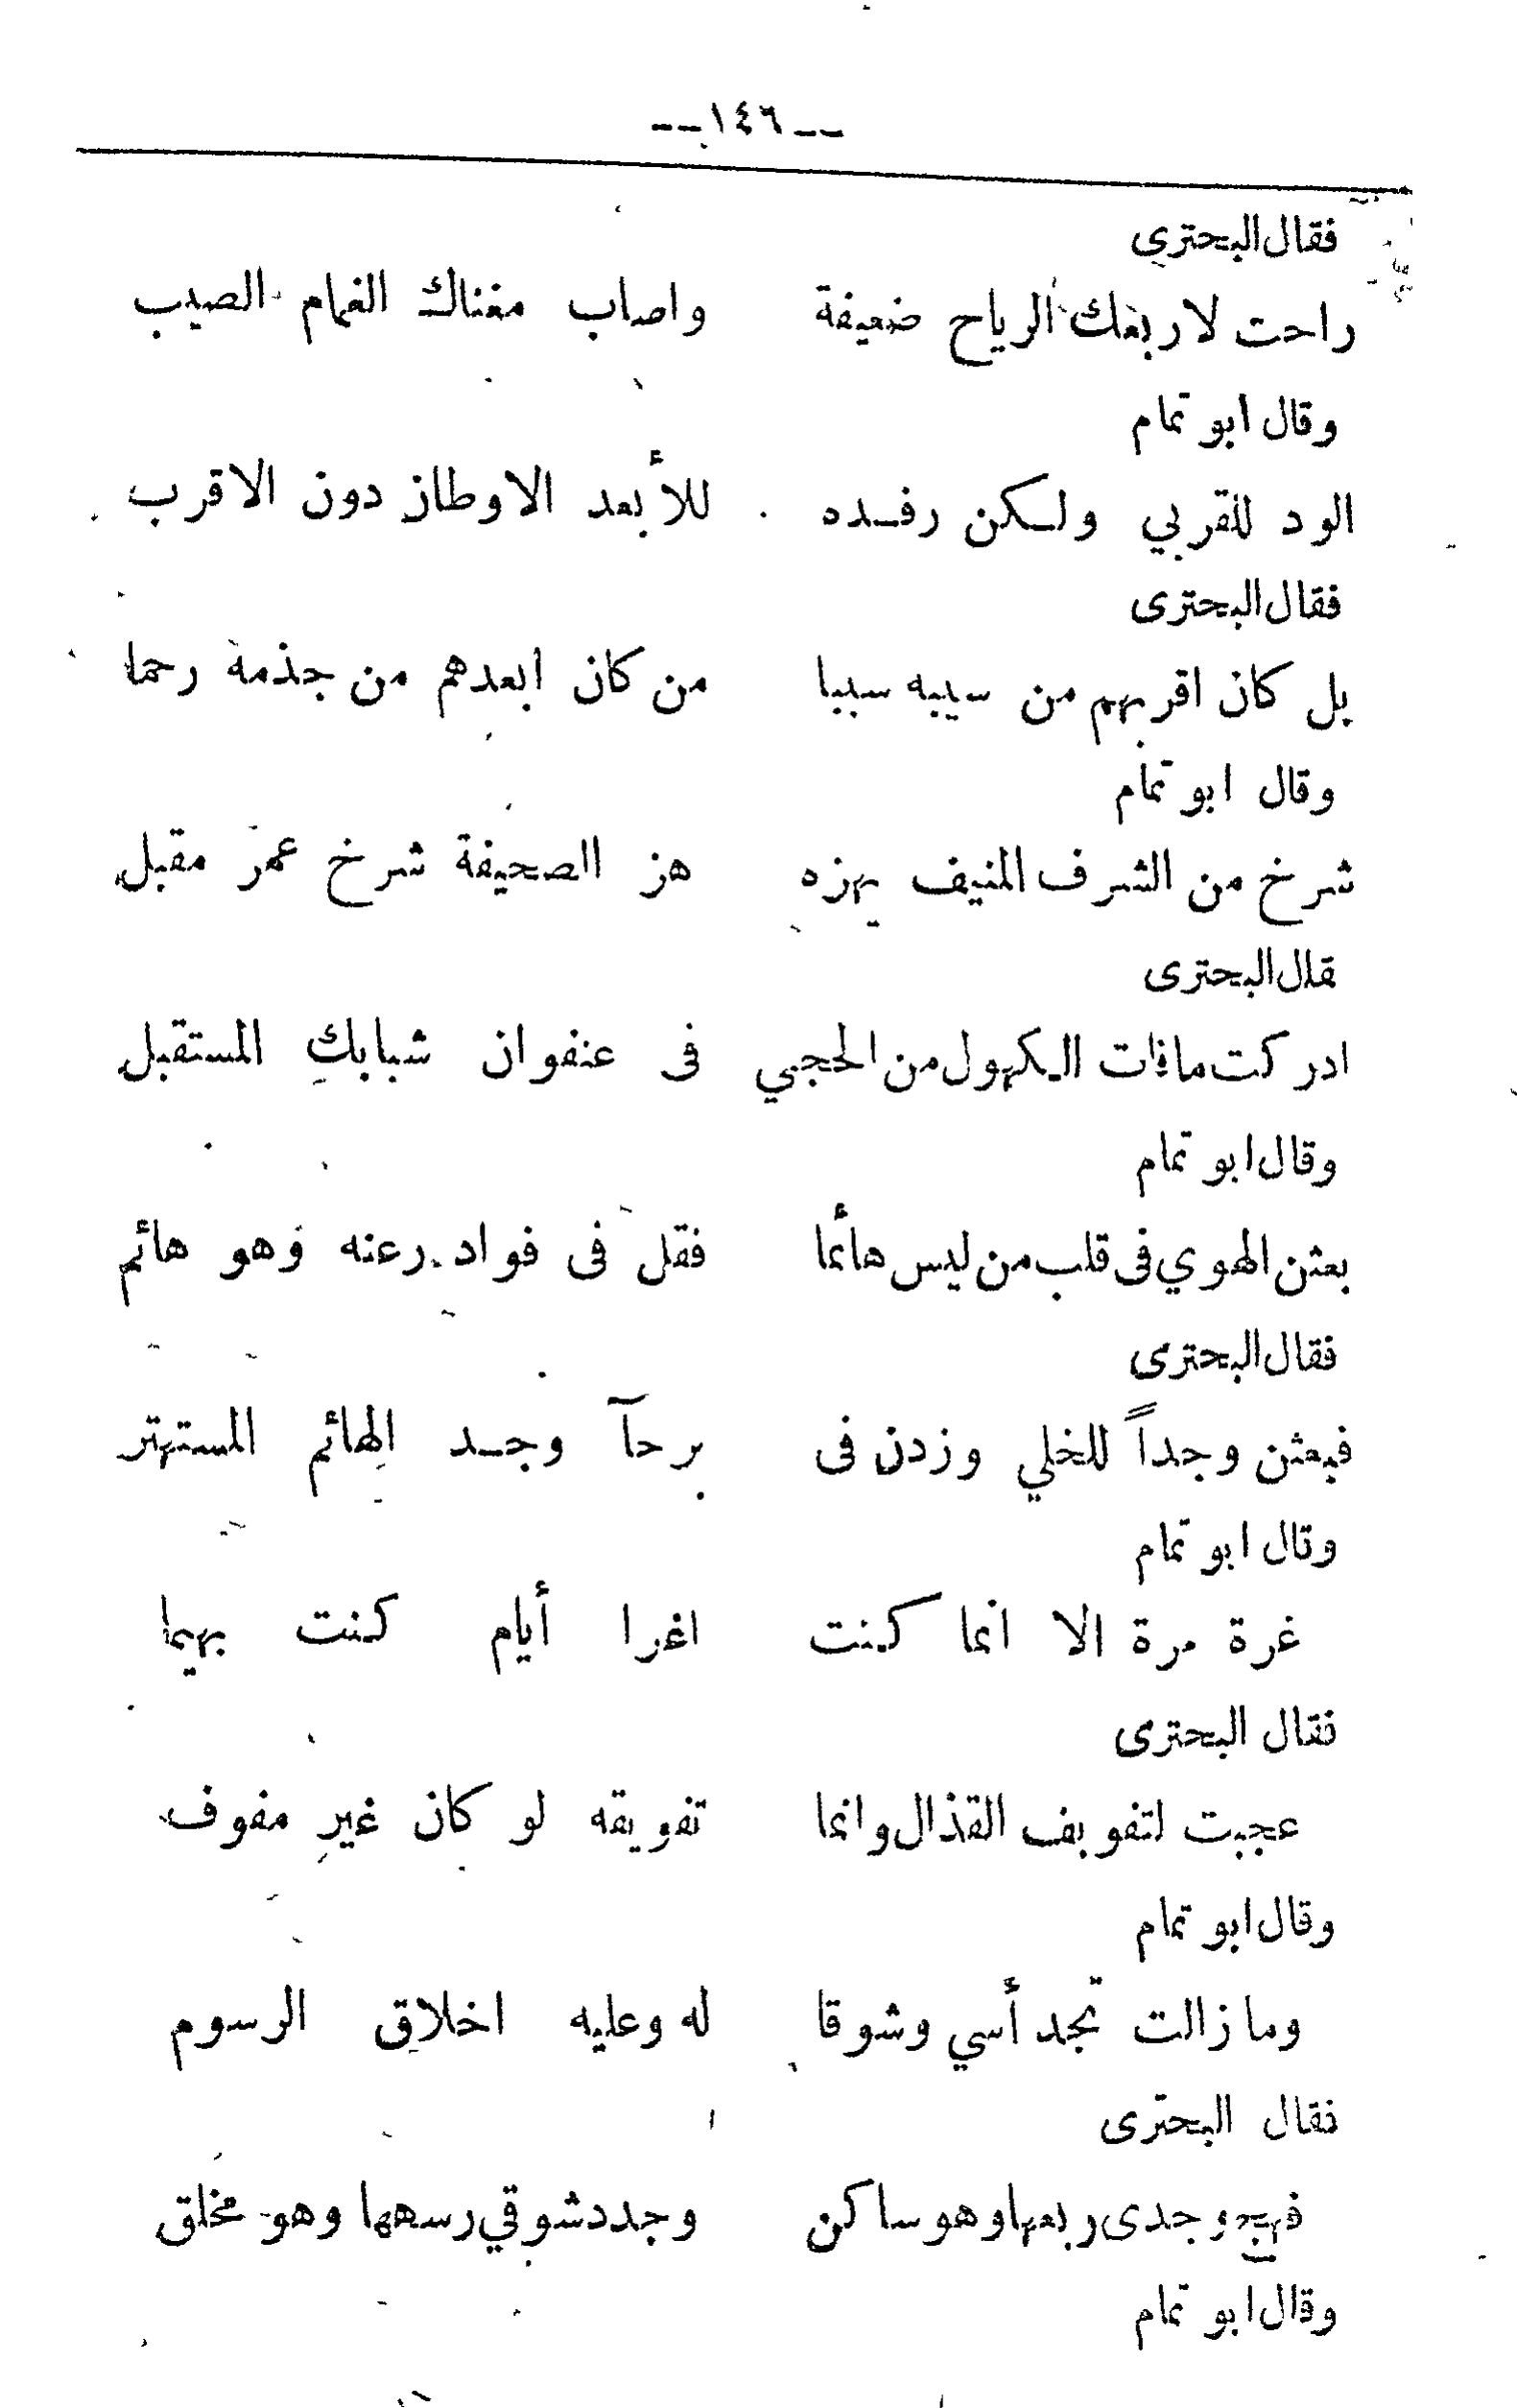 --١٤٦--
فقال البحترى
راحت لاربعك الرياح ضعيفة واصاب مغناك الغمام الصيب
وقال ابو تمام
الود للقربي ولكن رفده للأبعد الاوطان دون الاقرب
فقال البحترى
بل كان اقربهم من سيبه سببا من كان ابعدهم من جذمة رحما
وقال ابو تمام
شرخ من الشرف المنيف يهزه هز الصحيفة شرخ عمر مقبل
فقال البحترى
ادركت مافات الكهول من الحجي فى عنفوان شبابك المستقبل
وقال ابو تمام
بعثن الهوي فى قلب من ليس هائما فقل فى فواد رعنه وهو هائم
فقال البحترى
فبعثن وجداً للخلي وزدن فى برحآ وجد الهائم المستهتر
وقال ابو تمام
غرة مرة الا انما كنت اغرا أيام كنت بهيما
فقال البحترى
عجبت لتفويف القذال وانما تفويقه لو كان غير مفوف
وقال ابو تمام
وما زالت تجد أسي وشوقا له وعليه اخلاق الرسوم
فقال البحترى
فهيج وجدى ربعها وهو ساكن وجدد شوقي رسمها وهو مخلق
وقال ابو تمام